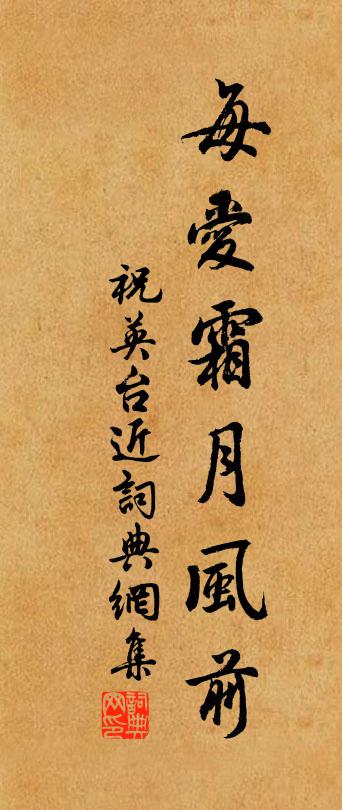 每愛霜月風前
祝英台近詞典網集
詞典网印